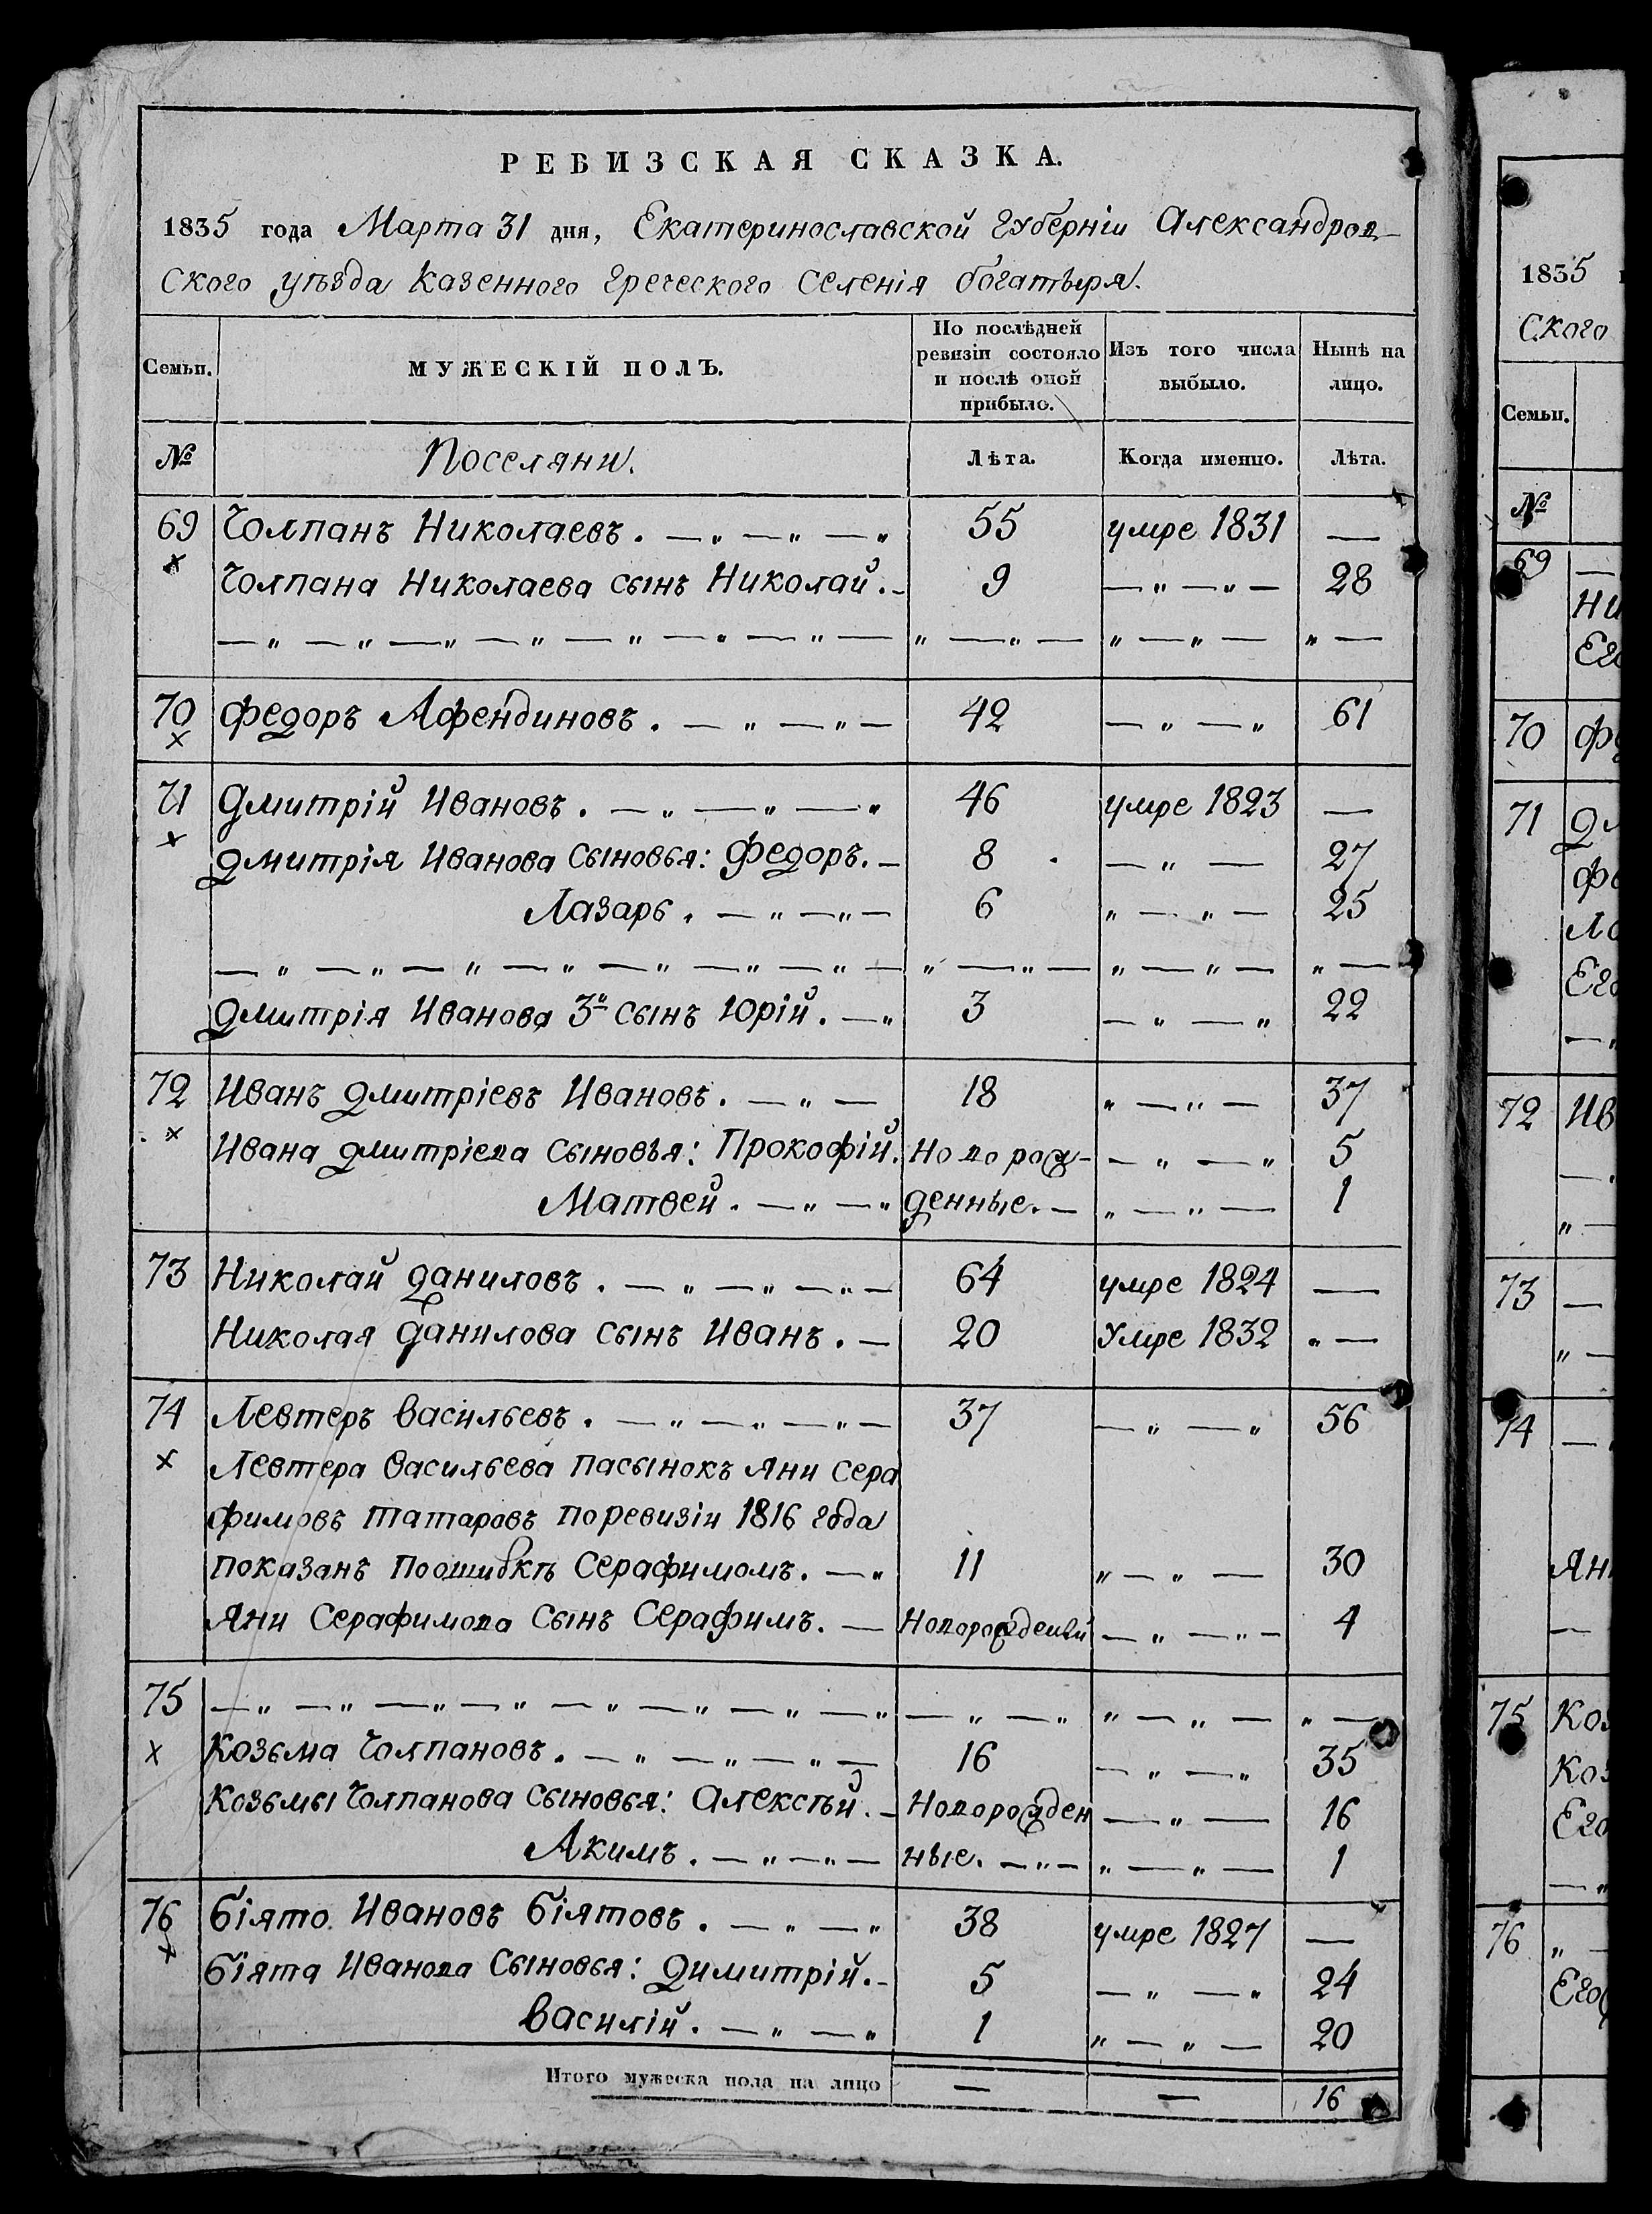 РЕВИЗСКАЯ СКАЗКА.
1835 года Марта 31 дня, Екатеринославской Губерніи Александров-
ского уѣзда казенного греческого селенія богатыря.
Семьи. МУЖЕСКІЙ ПОЛЪ. По послѣдней ревизіи состояло и послѣ оной прибыло. Изъ того числа выбыло. Нынѣ на лицо.
№ Поселяни. Лѣта. Когда именно. Лѣта.
69 Чолпанъ Николаевъ. 55 умре 1831 —
Чолпана Николаева сынъ Николай. 9 — 28
70 Федоръ Афендиновъ. 42 — 61
71 Дмитрій Ивановъ. 46 умре 1823 —
Дмитрія Иванова сыновья: Федоръ. 8 — 27
Лазарь. 6 — 25
Дмитрія Иванова 3й сынъ Юрій. 3 — 22
72 Иванъ Дмитріевъ Ивановъ. 18 — 37
Ивана Дмитріева сыновья: Прокофій. Новорож- — 5
Матвей. денные. — 1
73 Николай Даниловъ. 64 умре 1824 —
Николая Данилова сынъ Иванъ. 20 Умре 1832 —
74 Левтеръ Васильевъ. 37 — 56
Левтера Васильева пасынокъ Яни Сера
фимовъ Татаровъ поревизіи 1816 года
показанъ поошибкѣ Серафимомъ. 11 — 30
Яни Серафимова сынъ Серафимъ. Новорожденый — 4
75
Козьма Чолпановъ. 16 — 35
Козьмы Чолпанова сыновья: Алексѣй. Новорожден — 16
Акимъ. ные. — 1
76 Біято Ивановъ Біятовъ. 38 умре 1827 —
Біята Иванова сыновья: Димитрій. 5 — 24
Василій. 1 — 20
Итого мужеска пола на лицо — — 16
1835
ского
Семьи.
№
69
70
71
72
73
74
75
76